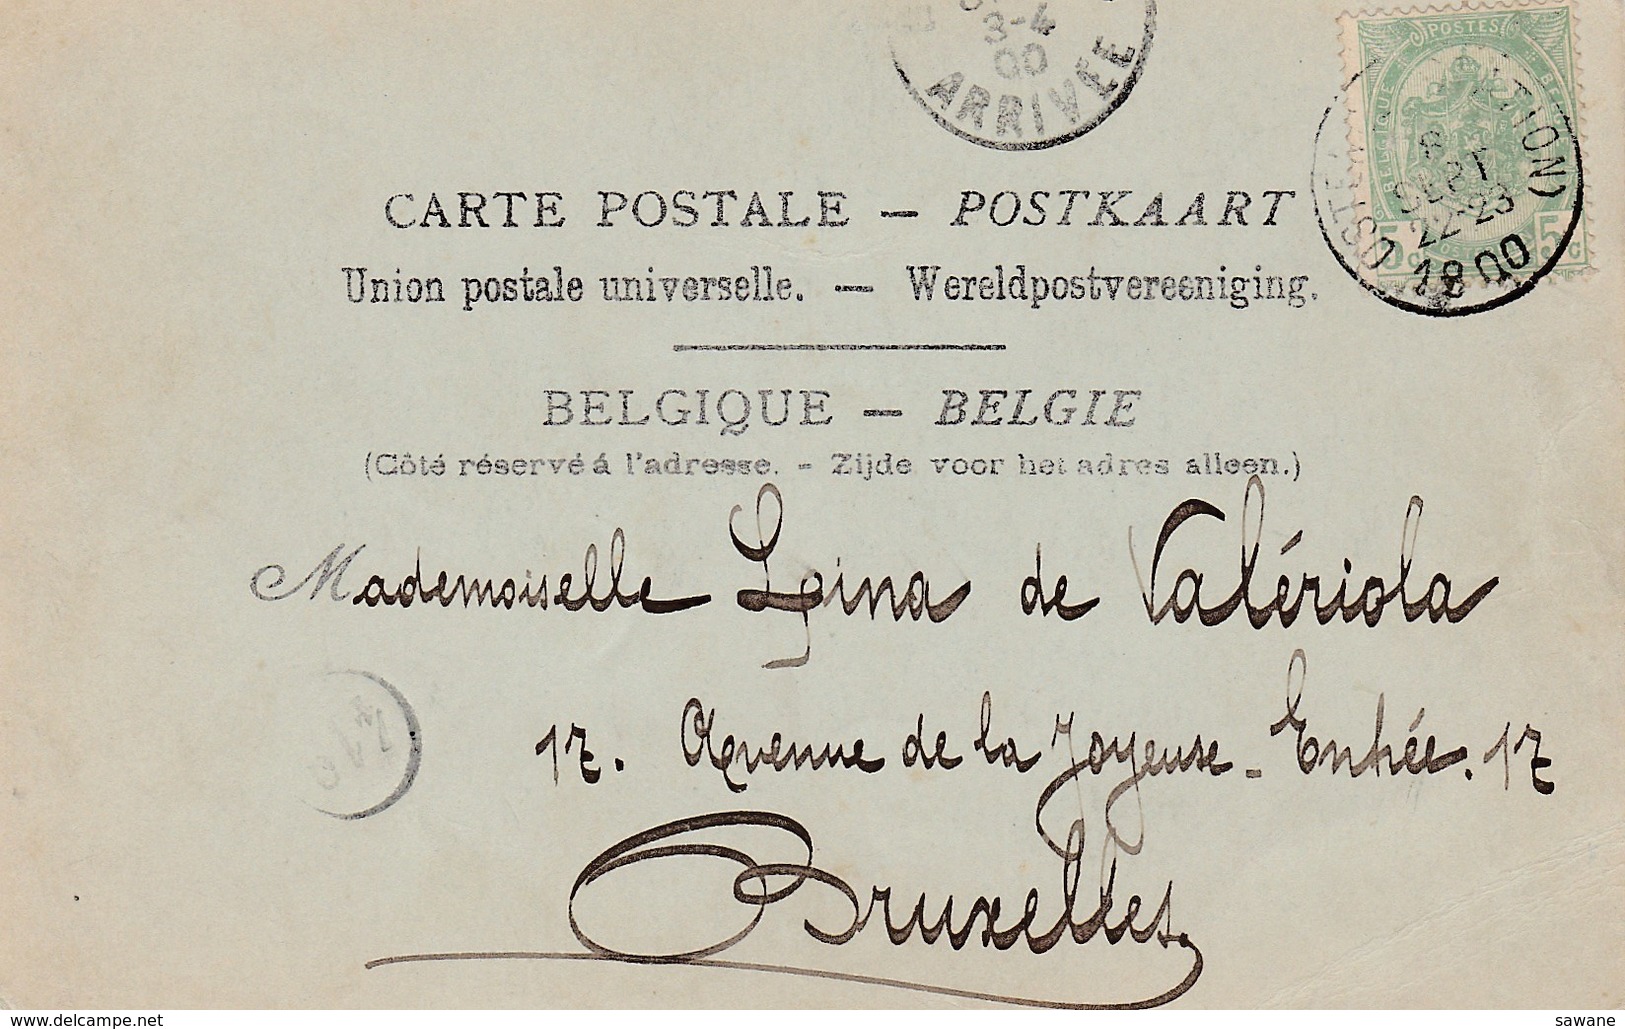 3-4
00
ARRIVEE
POSTES
BELGIQUE
5 c 5 c
8 SEPT
22-23
1900
CARTE POSTALE — POSTKAART
Union postale universelle. — Wereldpostvereeniging.
BELGIQUE — BELGIE
(Côté réservé á l'adresse. - Zijde voor het adres alleen.)
Mademoiselle de Valériola
17. Avenue de la Joyeuse-Entrée. 17
Bruxelles.
delcampe.net
sawane